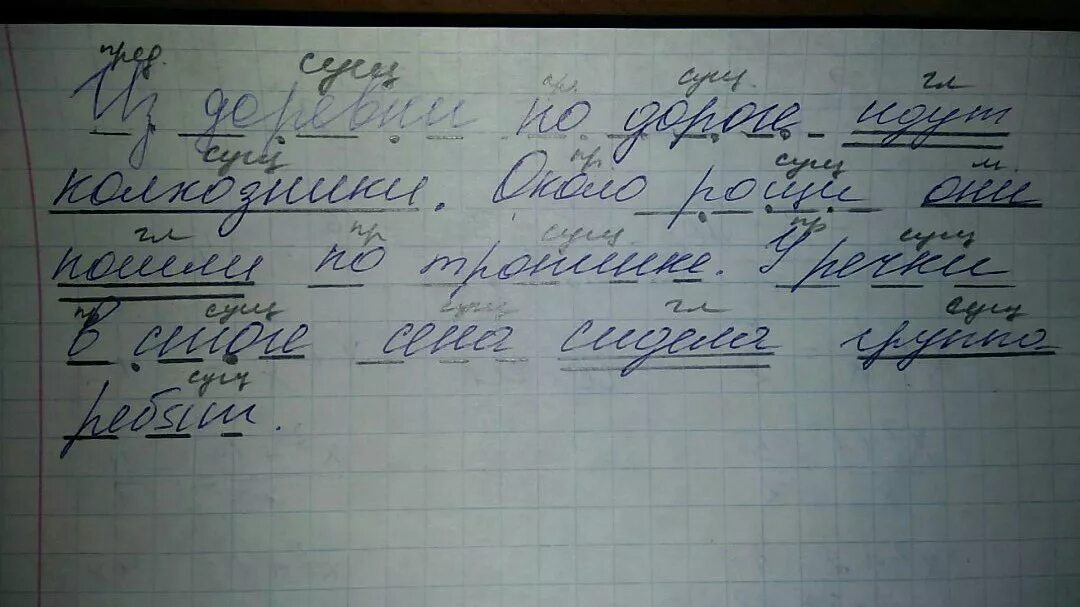 пред. сущ пр. сущ. гл
Из деревни по дороге идут
сущ пр сущ м.
колхозники. Около рощи они
гл пр сущ. пр сущ
пошли по тропинке. У речки
пр сущ сущ гл сущ
в стоге сена сидела группа
сущ
ребят.